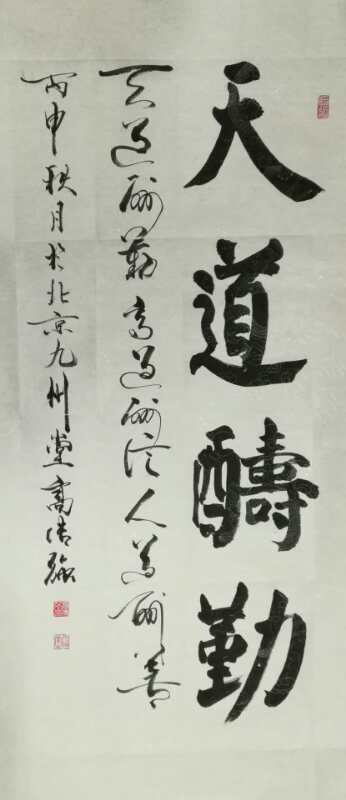 天道醻勤
天道酬勤商道酬信人道酬善
丙申秋月于北京九州堂高